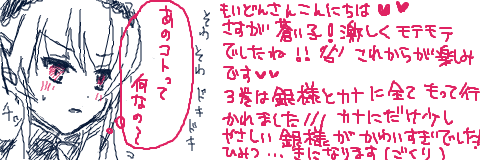 もいどんさんこんにちは♥♥
さすが蒼い子！激しくモテモテ
でしたね！！これからが楽しみ
です♥♥
3巻は銀様とカナに全てもって行
かれました///カナにだけ少し
やさしい銀様がかわいすぎでした
ひみつ…きになります(ごくり)
あのコトって
何なの～
そわそわ
ドキドキ
チラッ